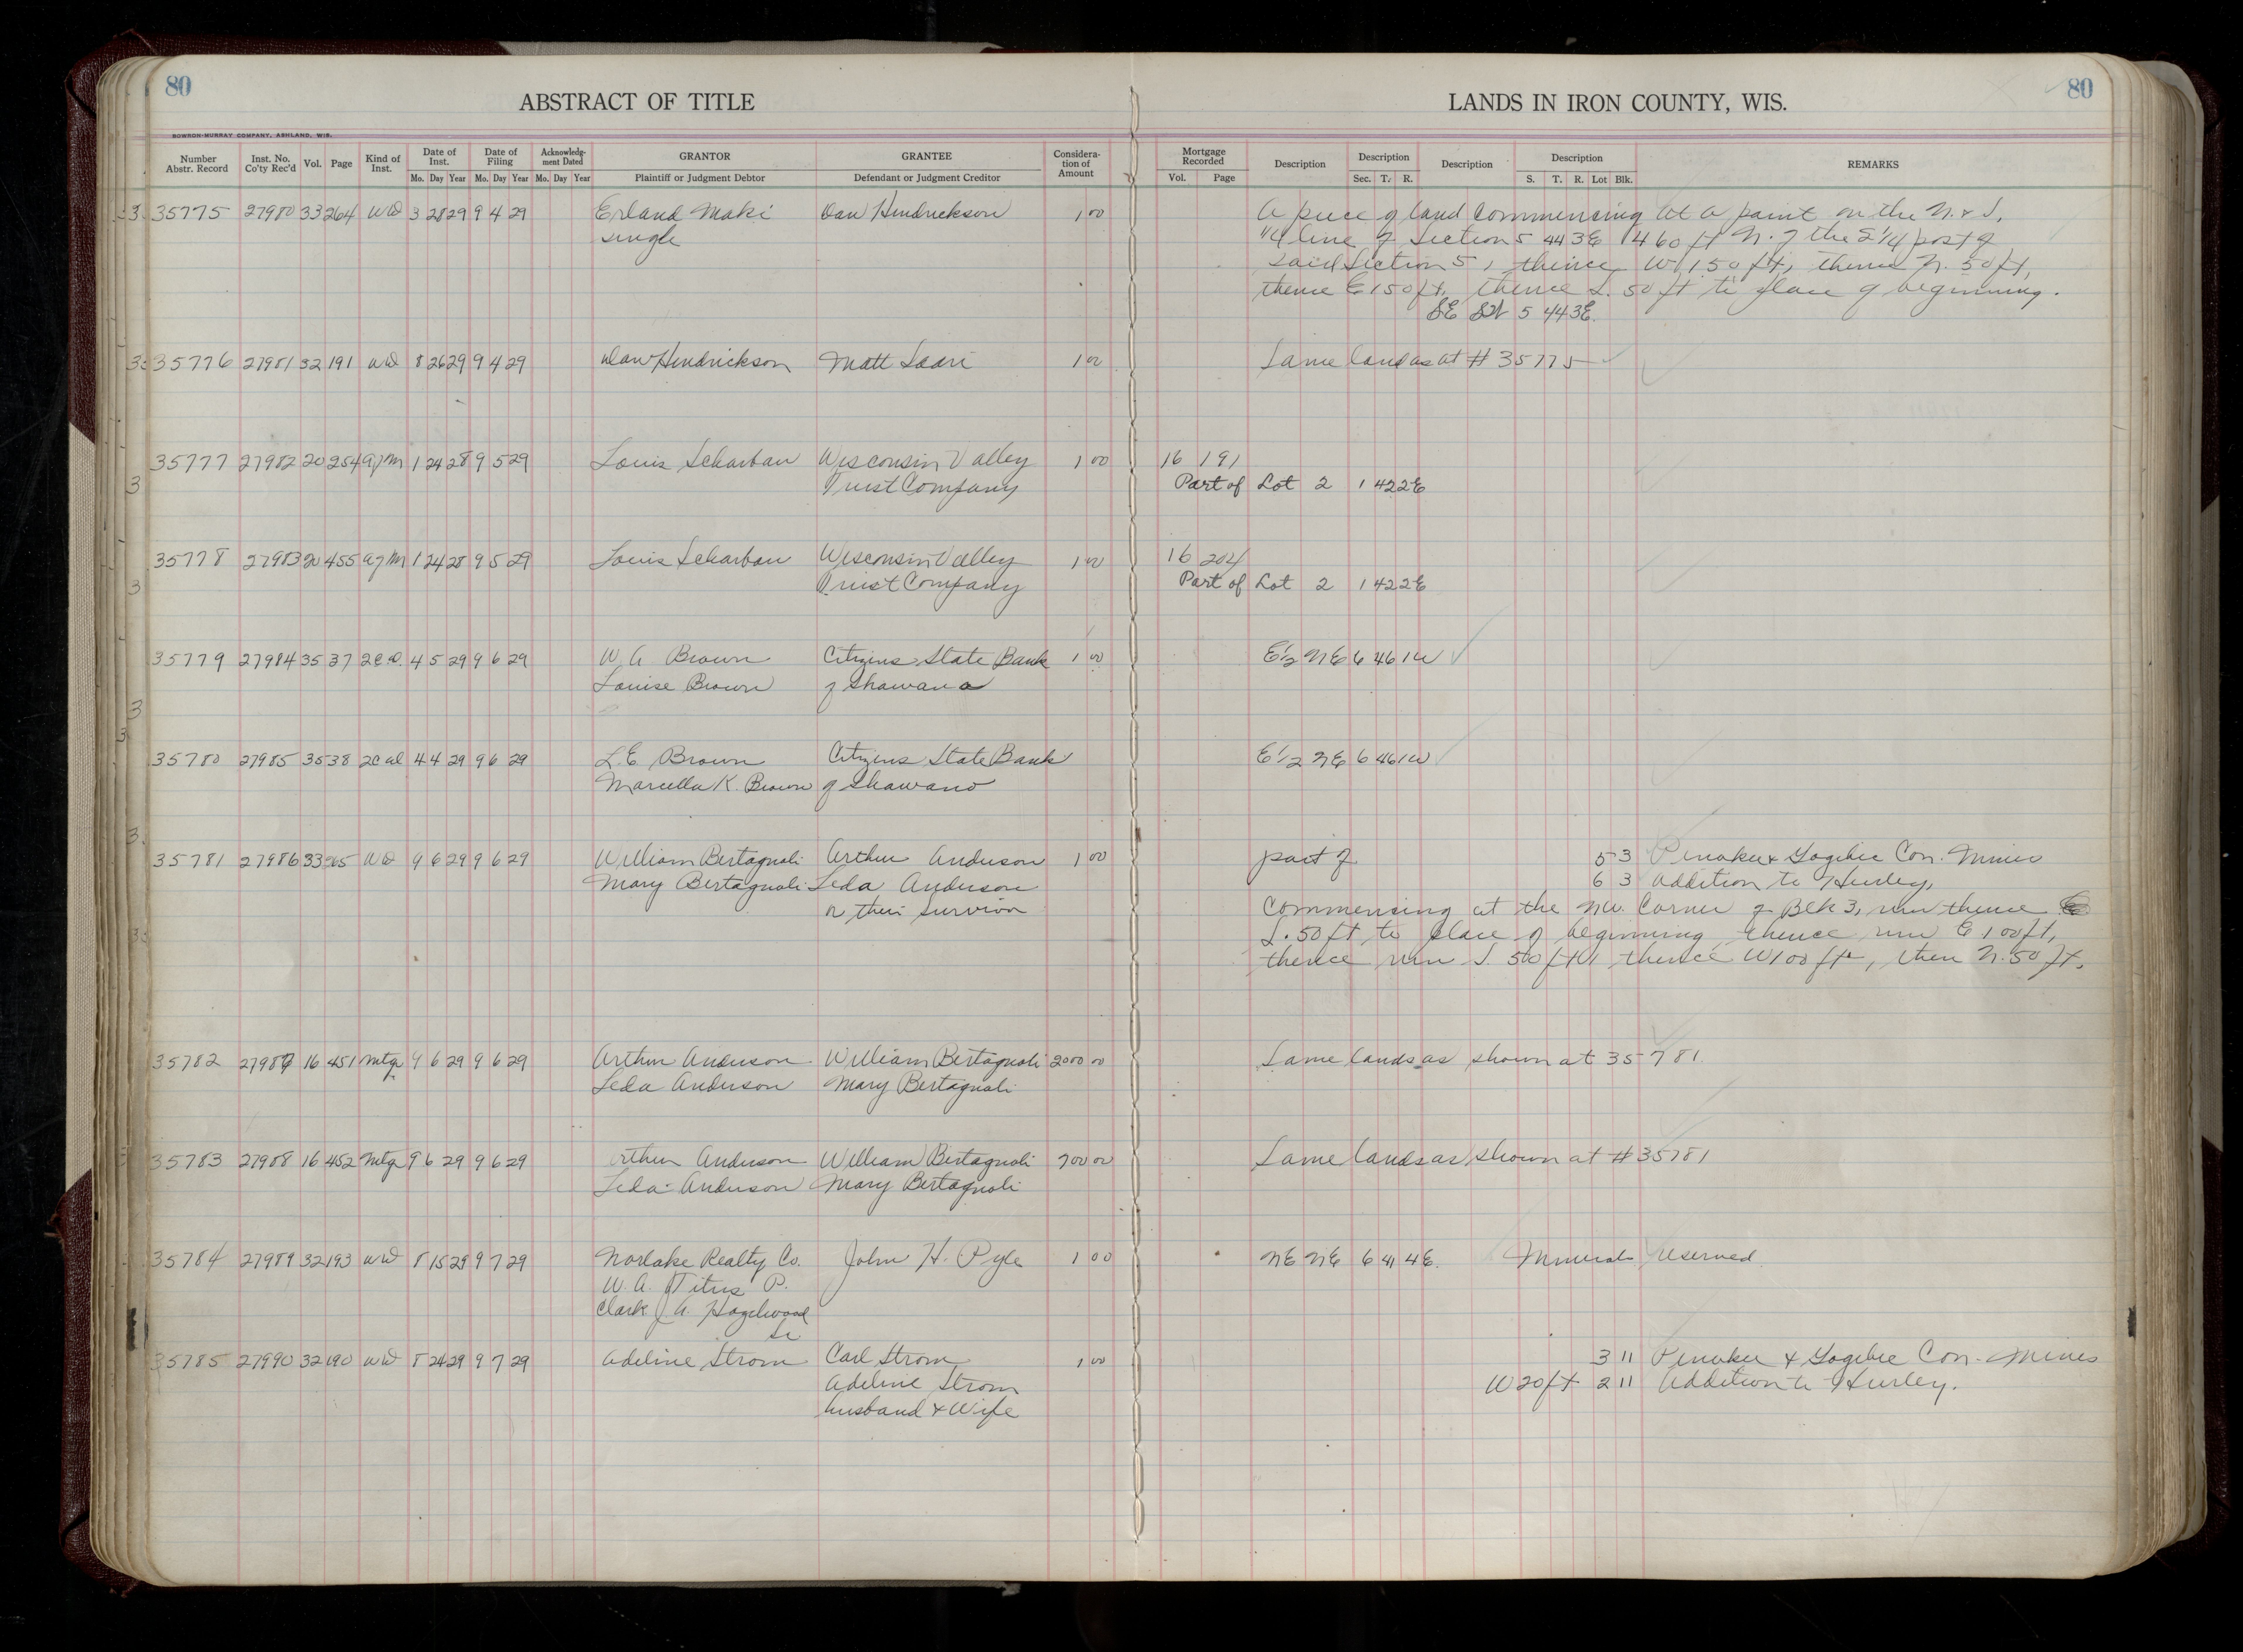 80
ABSTRACT OF TITLE
LANDS IN IRON COUNTY, WIS.
80
BOWRON-MURRAY COMPANY, ASHLAND, WIS.
Number Abstr. Record Inst. No. Co'ty Rec'd Vol. Page Kind of Inst. Date of Inst. Date of Filing Acknowledgment Dated GRANTOR GRANTEE Consideration of Amount Mortgage Recorded Description Description Description Description REMARKS
Mo. Day Year Mo. Day Year Mo. Day Year Plaintiff or Judgment Debtor Defendant or Judgment Creditor Vol. Page Sec. T. R. S. T. R. Lot Blk.
35775 27980 33 264 WD 3 28 29 9 4 29 Erland Maki Dan Hendrickson 1 00 A piece of land commencing at a point on the N. & S.
single 1/4 line of Section 5 44 3E 1460 ft N. of the S 1/4 post of
said Section 5, thence W 150 ft, thence N. 50 ft,
thence E 150 ft, thence S. 50 ft to place of beginning.
SE SW 5 44 3E.
35776 27981 32 191 WD 8 26 29 9 4 29 Dan Hendrickson Matt Saari 1 00 Same land as at # 35775
35777 27982 20 254 1 24 28 9 5 29 Louis Scharbau Wisconsin Valley 1 00 16 191
Trust Company Part of Lot 2 1 42 2E
35778 27983 20 455 1 24 28 9 5 29 Louis Scharbau Wisconsin Valley 1 00 16 204
Trust Company Part of Lot 2 1 42 2E
35779 27984 35 37 2CD. 4 5 29 9 6 29 W A Brown Citizens State Bank 1 00 E 1/2 NE 6 46 1W
Louise Brown of Shawano
35780 27985 35 38 4 4 29 9 6 29 L.E. Brown Citizens State Bank E 1/2 NE 6 46 1W
Marcella K. Brown of Shawano
35781 27986 33 265 WD 9 6 29 9 6 29 William Bertagnoli Arthur Anderson 1 00 part of 5 3 Penokee & Gogebic Con. Mines
Mary Bertagnoli Leda Anderson 6 3 Addition to Hurley,
or their survivor Commencing at the NW. Corner of Blk 3, run thence
S. 50 ft to place of beginning, thence run E 100 ft,
thence run S. 50 ft, thence W 100 ft, then N. 50 ft.
35782 27987 16 451 Mtg 9 6 29 9 6 29 Arthur Anderson William Bertagnoli 2000 00 Same lands as shown at 35781.
Leda Anderson Mary Bertagnoli
35783 27988 16 452 Mtg 9 6 29 9 6 29 Arthur Anderson William Bertagnoli 700 00 Same lands as shown at # 35781
Leda Anderson Mary Bertagnoli
35784 27989 32 193 WD 8 15 29 9 7 29 Norlake Realty Co. John H. Pyle 1 00 NE NE 6 41 4E. Minerals reserved
W. A. Titus P.
Clark J A. Hazelwood
Se
35785 27990 32 190 WD 8 24 29 9 7 29 Adeline Strom Carl Strom 1 00 3 11 Penokee & Gogebic Con. Mines
Adeline Strom W 20 ft 2 11 Addition to Hurley.
husband & Wife